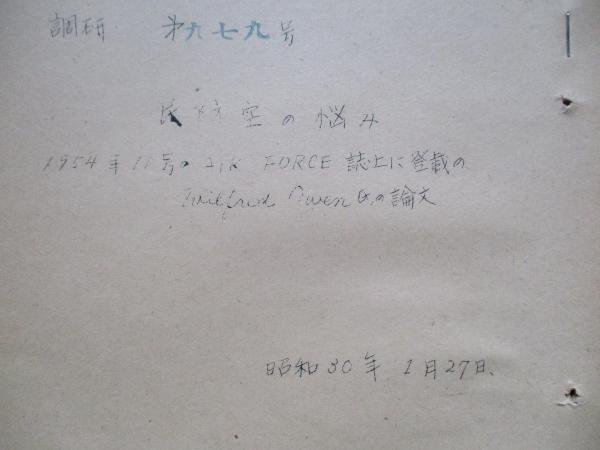 調研 第九七九号
民防空の悩み
1954年11号の AIR FORCE 誌上に登載の
Wilfred Owen 氏の論文
昭和30年 1月27日、